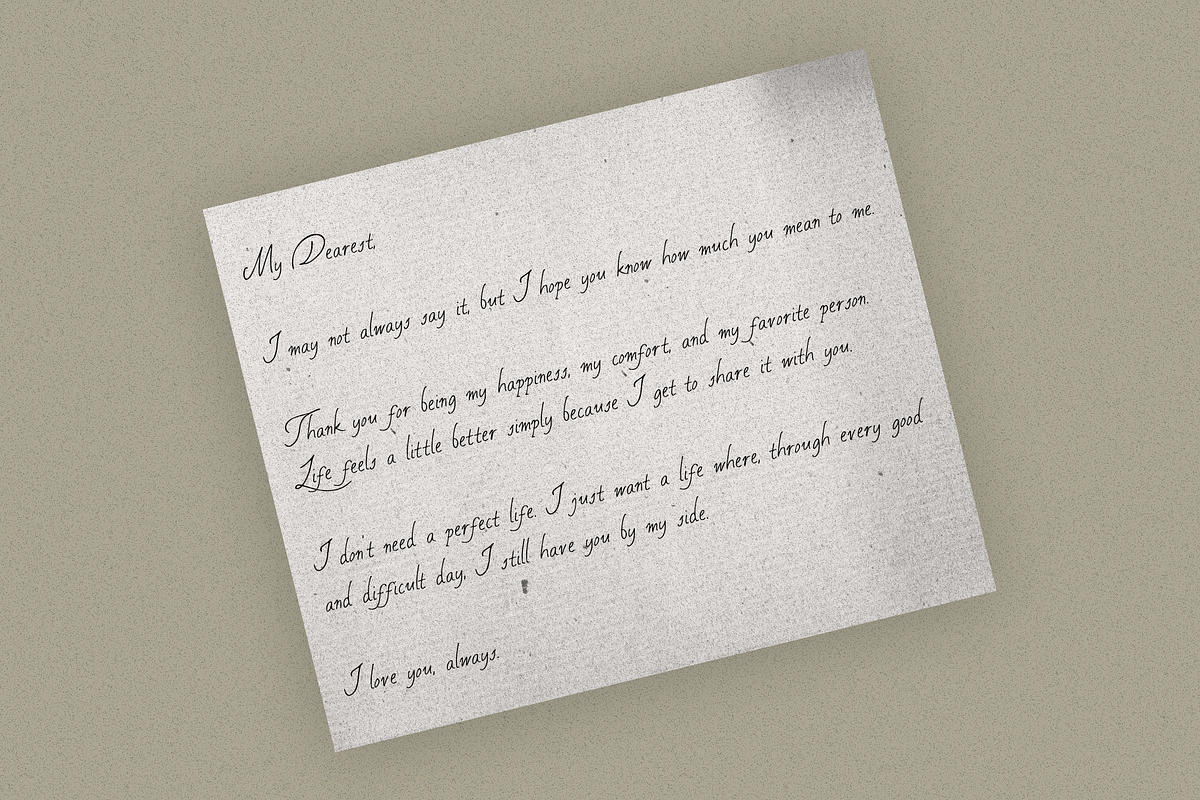 My Dearest,
I may not always say it, but I hope you know how much you mean to me.
Thank you for being my happiness, my comfort, and my favorite person.
Life feels a little better simply because I get to share it with you.
I don't need a perfect life. I just want a life where, through every good
and difficult day, I still have you by my side.
I love you, always.